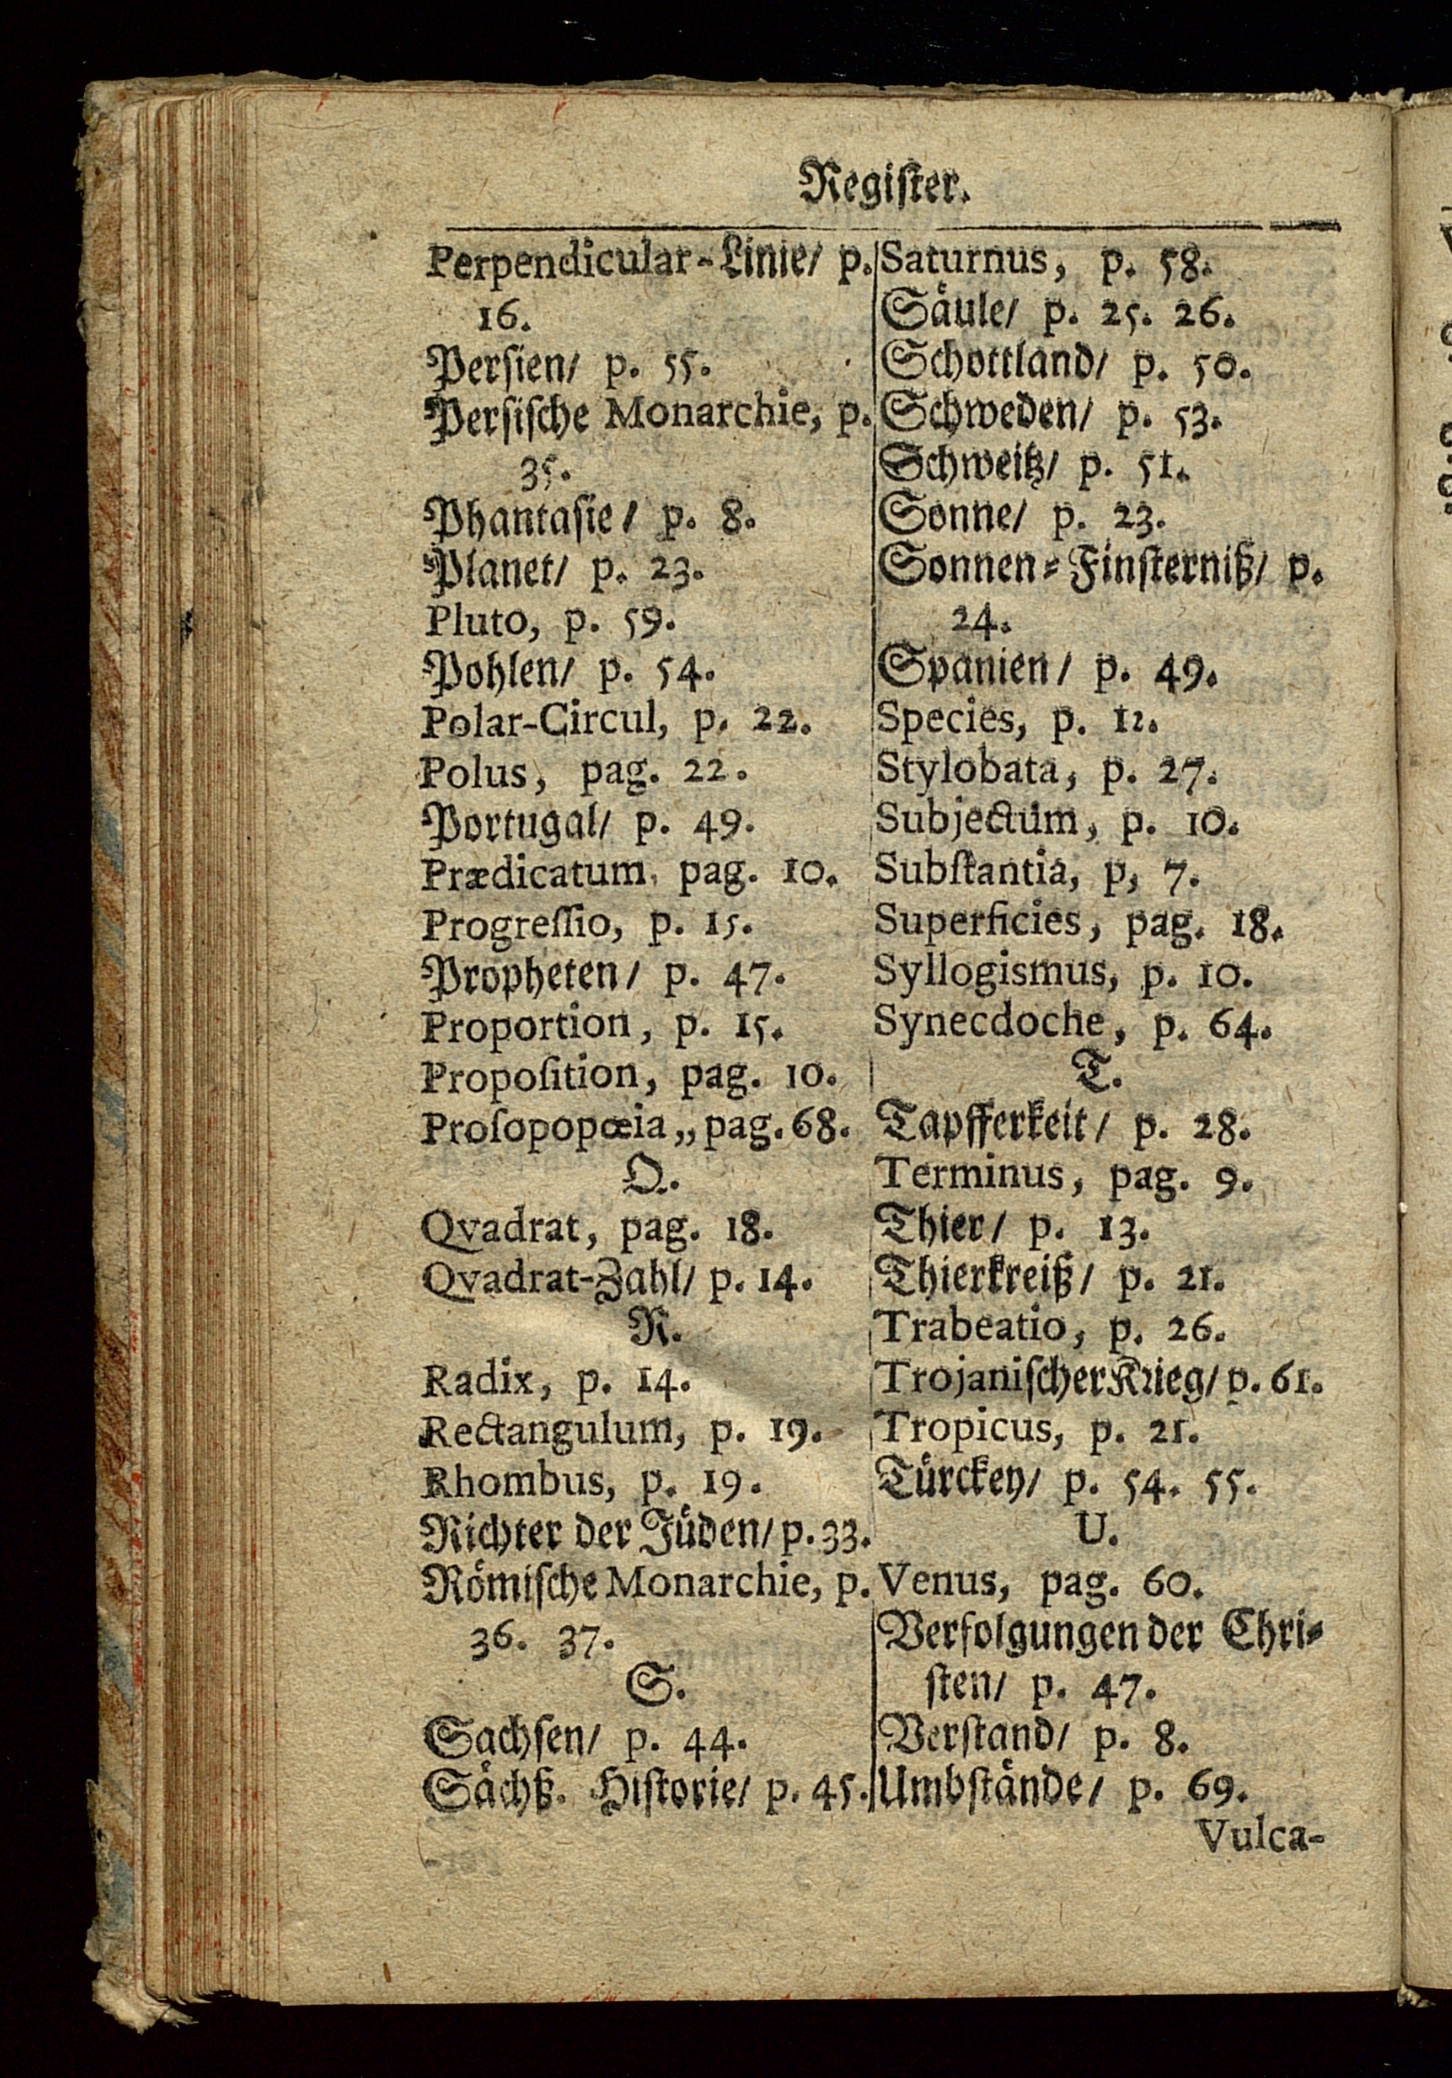 Regiſter.
Perpendicular-Linie/ p.
16.
Perſien/ p. 55.
Perſiſche Monarchie, p.
35.
Phantaſie/ p. 8.
Planet/ p. 23.
Pluto, p. 59.
Pohlen/ p. 54.
Polar-Circul, p. 22.
Polus, pag. 22.
Portugal/ p. 49.
Prædicatum, pag. 10.
Progreſſio, p. 15.
Propheten/ p. 47.
Proportion, p. 15.
Propoſition, pag. 10.
Proſopopœia,, pag. 68.
Q.
Qvadrat, pag. 18.
Qvadrat-Zahl/ p. 14.
R.
Radix, p. 14.
Rectangulum, p. 19.
Rhombus, p. 19.
Richter der Jüden/ p. 33.
Römiſche Monarchie, p.
36. 37.
S.
Sachſen/ p. 44.
Sächß. Hiſtorie/ p. 45.
Saturnus, p. 58.
Säule/ p. 25. 26.
Schottland/ p. 50.
Schweden/ p. 53.
Schweitz/ p. 51.
Sonne/ p. 23.
Sonnen⸗Finſterniß/ p.
24.
Spanien/ p. 49.
Species, p. 12.
Stylobata, p. 27.
Subjectum, p. 10.
Subſtantia, p, 7.
Superficies, pag. 18.
Syllogismus, p. 10.
Synecdoche, p. 64.
T.
Tapfferkeit/ p. 28.
Terminus, pag. 9.
Thier/ p. 13.
Thierkreiß/ p. 21.
Trabeatio, p. 26.
Trojaniſcher Krieg/ p. 61.
Tropicus, p. 21.
Türckey/ p. 54. 55.
U.
Venus, pag. 60.
Verfolgungen der Chri⸗
ſten/ p. 47.
Verſtand/ p. 8.
Umbſtände/ p. 69.
Vulca-